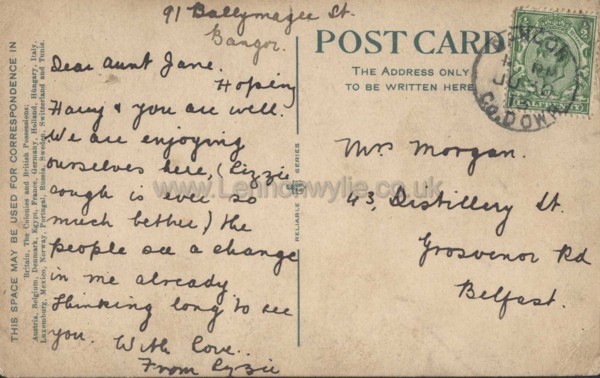 91 Ballymagee St.
Bangor.
Dear Aunt Jane.
Hoping
Harry & you are well.
We are enjoying
ourselves here, (Lizzie
cough is ever so
much bether) the
people see a change
in me already
thinking long to see
you. With love..
From Lyzie
POST CARD
THE ADDRESS ONLY
TO BE WRITTEN HERE
BANGOR
JU 30
13
CO. DOWN
HALFPENNY
Mrs Morgan.
43, Distillery St.
Grosvenor Rd
Belfast.
THIS SPACE MAY BE USED FOR CORRESPONDENCE IN
Britain, The Colonies and British Possessions;
Austria, Belgium, Denmark, Egypt, France, Germany, Holland, Hungary, Italy,
Luxemburg, Mexico, Norway, Portugal, Russia, Sweden, Switzerland and Tunis.
RELIABLE
SERIES
www.Lennonwylie.co.uk